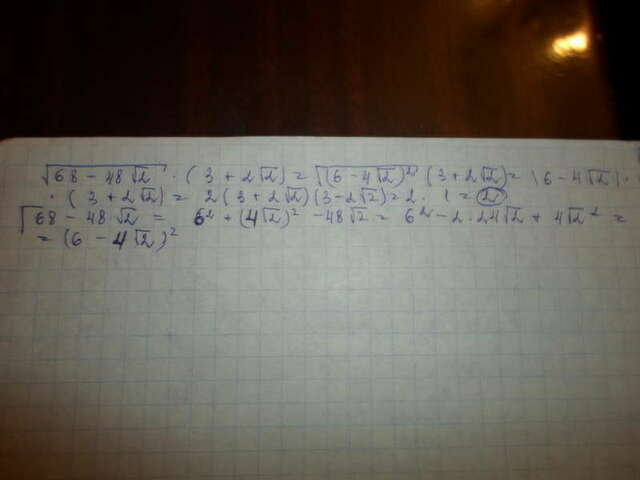 √68 - 48√2 · (3 + 2√2) = √(6 - 4√2)² (3 + 2√2) = |6 - 4√2| ·
· (3 + 2√2) = 2(3 + 2√2)(3 - 2√2) = 2 · 1 = 2
√68 - 48√2 = 6² + (4√2)² - 48√2 = 6² - 2·24√2 + 4√2² =
= (6 - 4√2)²